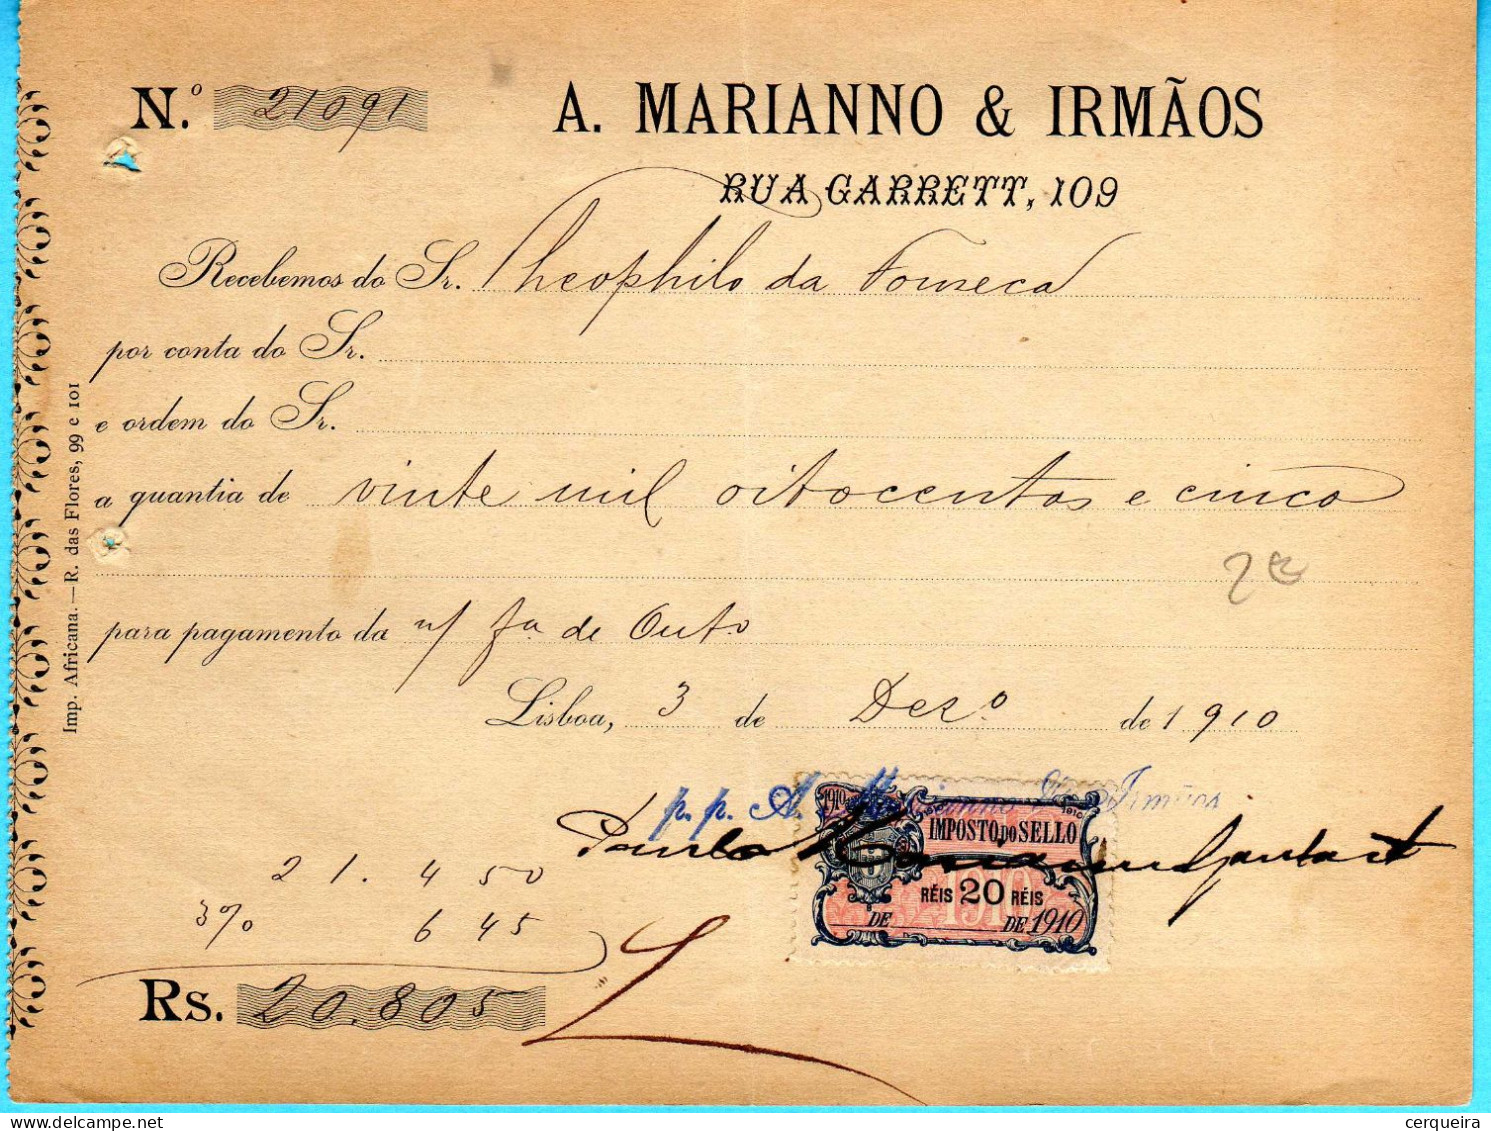 N.º 21091
A. MARIANNO & IRMÃOS
RUA GARRETT, 109
Recebemos do Sr. Theophilo da Fonseca
por conta do Sr.
e ordem do Sr.
a quantia de vinte mil oitocentos e cinco
para pagamento da n/ fa. de Outo
Lisboa, 3 de Dezº de 1910
p.p. A. Marianno & Irmãos
Paulo
1910
IMPOSTO DO SELLO
RÉIS 20 RÉIS
1910
DE DE 1910
21.450
3% 645
Rs. 20.805
Imp. Africana. — R. das Flores, 99 e 101
cerqueira